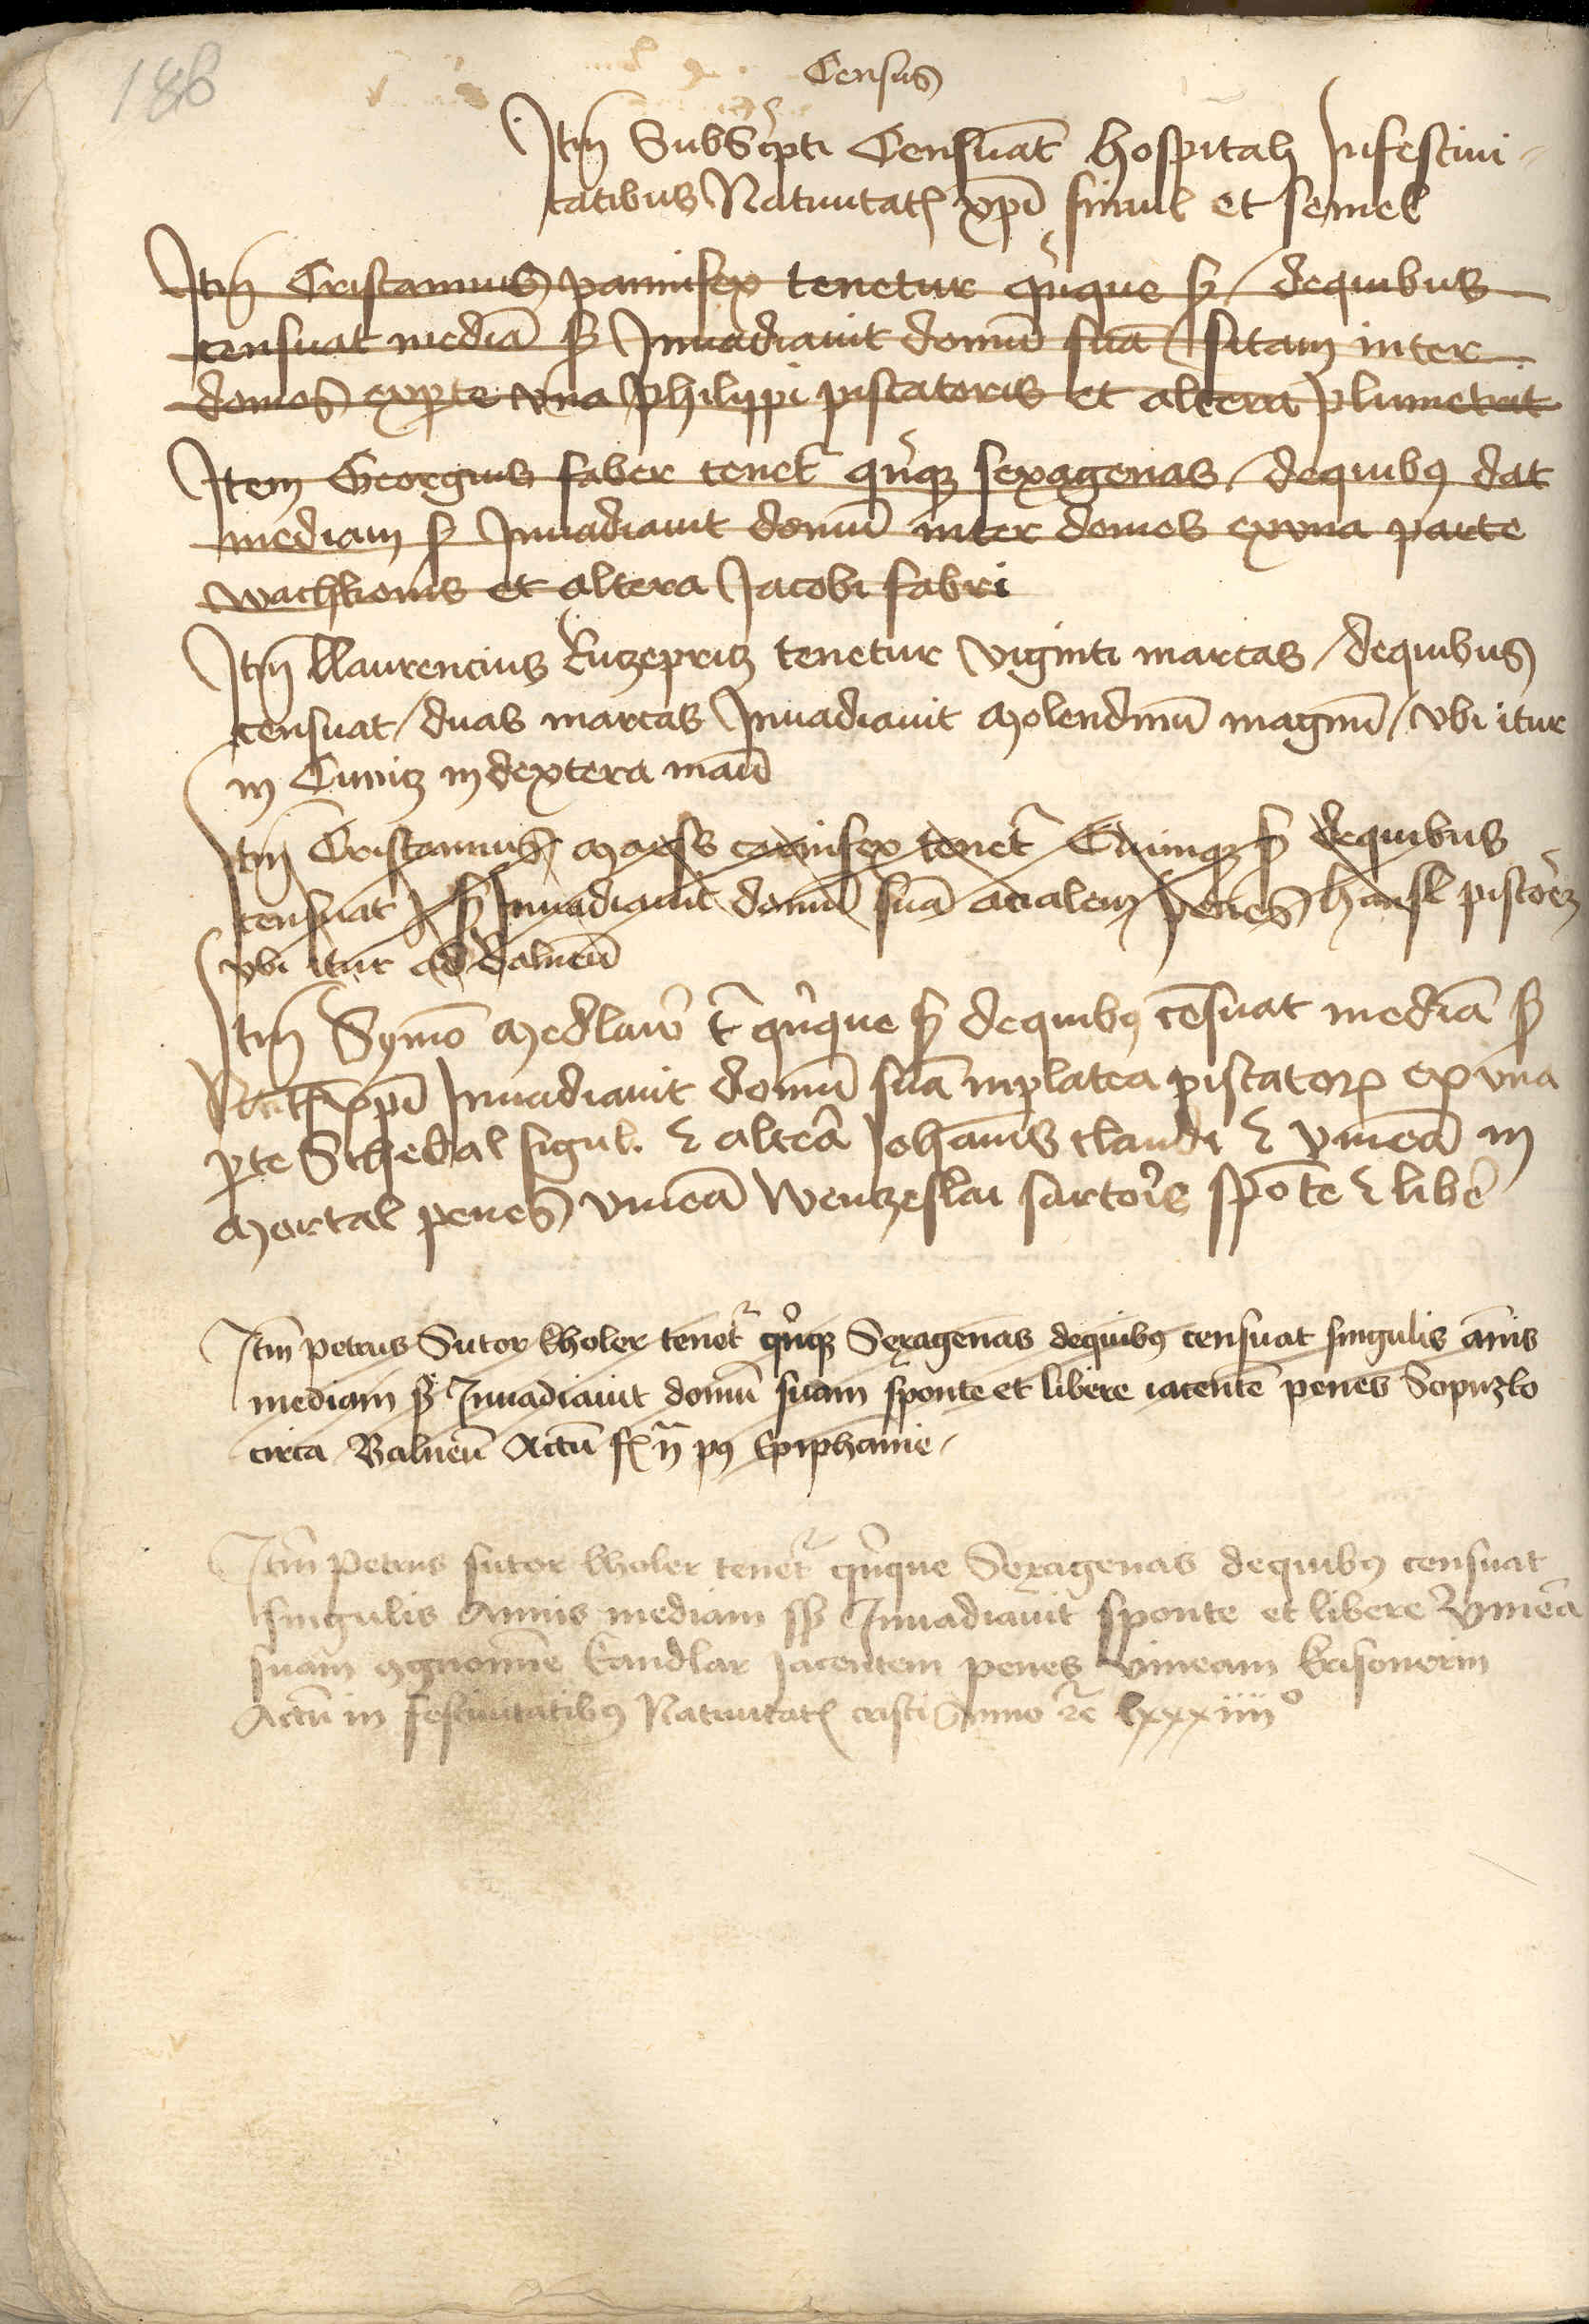 188
Census
Itm̄ Subscͥpti Censuāt hospitalȝ Infestiui-
tatibus Natiuitatꝭ xp̄i simul et semel
Itm̄ Cristannus pannifex tenetur qͥnque ß / dequibus
censuat mediā ß Inuadiauit domū suā / sitam inter
domos exꝑte vna philippi piscatoris et altera plumetrit
Item Georgius faber tenetᷣ qͥnqꝫ sexagenas / dequibꝰ dat
mediam ß Inuadiauit domū inter domos exvna parte
wachstonis et altera Jacobi fabri
Itm̄ llaurencius kuczepris tenetur viginti marcas / dequibus
censuat / duas marcas Inuadiauit Molendinū magnū / vbi itur
in Cunicz in dextera manū
Itm̄ Cristannus carnifex tenetᷣ Quinqꝫ ß dequibus
censuat ß Inuadiauit domū suā acialem penes hansl pistorē
vbi itur ad balneū
Itm̄ Symō Medlaw tᷣ qͥnque ß dequibꝰ cēsuat mediā ß
Natꝭ xp̄i Inuadiauit domū suā inplatea piscatorꝝ ex vna
ꝑte Schebal figul. et alteā Johannis claudi et vineā in
Mortal penes vineā Wenczeslai sartoris spōte et liberͤ
Itm̄ petrus Sutor kholer tenetᷣ qͥnqꝫ Sexagenas dequibꝰ censuat singulis ānis
mediam ß Inuadiauit domū suam sponte et libere iacentē penes Sopuzlo
circa Balneū Actū fꝭ ij pꝰ Epiphanie
Itm̄ Petrus sutor kholer tenetᷣ qͥnque Sexagenas dequibꝰ censuat
singulis Annis mediam ß Inuadiauit sponte et libere vineā
suam cognomine kandlar Jacentem penes vineam krisonerin
Actū in festiuitatibꝰ Natiuitatꝭ cristi Anno ⁊c̄ lxxxiiii°